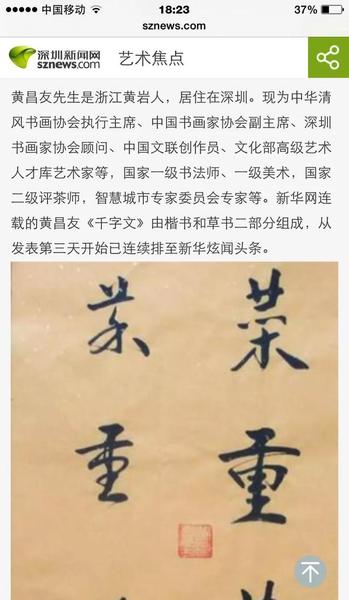 中国移动 18:23 37%
sznews.com
深圳新闻网
sznews.com
艺术焦点
黄昌友先生是浙江黄岩人，居住在深圳。现为中华清
风书画协会执行主席、中国书画家协会副主席、深圳
书画家协会顾问、中国文联创作员、文化部高级艺术
人才库艺术家等，国家一级书法师、一级美术，国家
二级评茶师，智慧城市专家委员会专家等。新华网连
载的黄昌友《千字文》由楷书和草书二部分组成，从
发表第三天开始已连续排至新华炫闻头条。
菜重
菜重